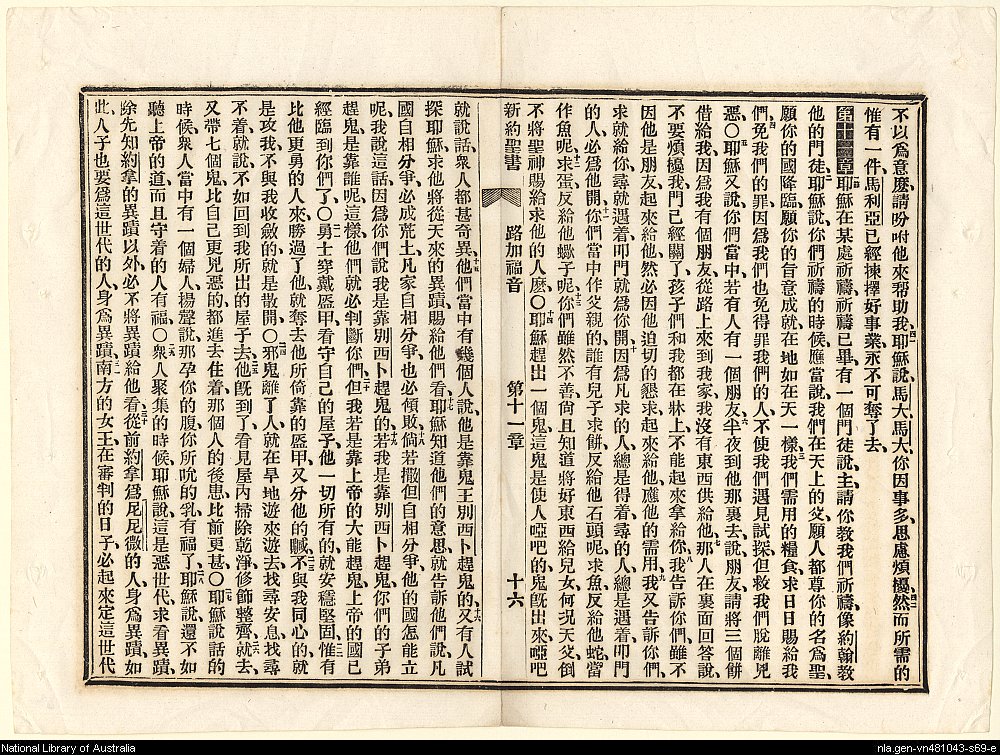 不以爲意麽請吩咐他來帮助我耶穌說馬大馬大你因事多思慮煩擾然而所需的
惟有一件馬利亞已經揀擇好事業永不可奪了去
第十一章耶穌在某處祈禱祈禱已畢有一個門徒說主請你敎我們祈禱像約翰敎
他的門徒耶穌說你們祈禱的時候應當說我們在天上的父願人都尊你的名爲聖
願你的國降臨願你的旨意成就在地如在天一樣我們需用的糧食求日日賜給我
們免我們的罪因爲我們也免得罪我們的人不使我們遇見試探但救我們脫離兇
惡〇耶穌又說你們當中若有人有一個朋友半夜到他那裏去說朋友請將三個餅
借給我因爲我有個朋友從路上來到我家我沒有東西供給他那人在裏面回答說
不要煩擾我門已經關了孩子們和我都在牀上不能起來拿給你我告訴你們雖不
因他是朋友起來給他然必因他迫切的懇求起來給他應他的需用我又告訴你們
求就給你尋就遇着叩門就爲你開因爲凡求的人總是得着尋的人總是遇着叩門
的人必爲他開你們當中作父親的誰有兒子求餅反給他石頭呢求魚反給他蛇當
作魚呢求蛋反給他蠍子呢你們雖然不善尙且知道將好東西給兒女何况天父倒
不將聖神賜給求他的人麽〇耶穌趕出一個鬼這鬼是使人啞吧的鬼旣出來啞吧
新約聖書 路加福音 第十一章 十六
就說話衆人都甚奇異他們當中有幾個人說他是靠鬼王別西卜趕鬼的又有人試
探耶穌求他將從天來的異蹟賜給他們看耶穌知道他們的意思就告訴他們說凡
國自相分爭必成荒土凡家自相分爭也必傾敗倘若撒但自相分爭他的國怎能立
呢我說這話因爲你們說我是靠別西卜趕鬼的若我是靠別西卜趕鬼你們的子弟
趕鬼是靠誰呢這樣他們就必判斷你們但我若是靠上帝的大能趕鬼上帝的國已
經臨到你們了〇勇士穿戴盔甲看守自己的屋子他一切所有的就安穩堅固惟有
比他更勇的人來勝過了他就奪去他所倚靠的盔甲又分他的贓不與我同心的就
是攻我不與我收斂的就是散開〇邪鬼離了人就在旱地遊來遊去找尋安息找尋
不着就說不如回到我所出的屋子去他旣到了看見屋內掃除乾淨修飾整齊就去
又帶七個鬼比自己更兇惡的都進去住着那個人的後患比前更甚〇耶穌說話的
時候衆人當中有一個婦人揚聲說那孕你的腹你所吮的乳有福了耶穌說還不如
聽上帝的道而且守着的人有福〇衆人聚集的時候耶穌說這是惡世代求看異蹟
除先知約拿的異蹟以外必不將異蹟給他看從前約拿爲尼尼微的人身爲異蹟如
此人子也要爲這世代的人身爲異蹟南方的女王在審判的日子必起來定這世代
National Library of Australia
nla.gen-vn481043-s69-e